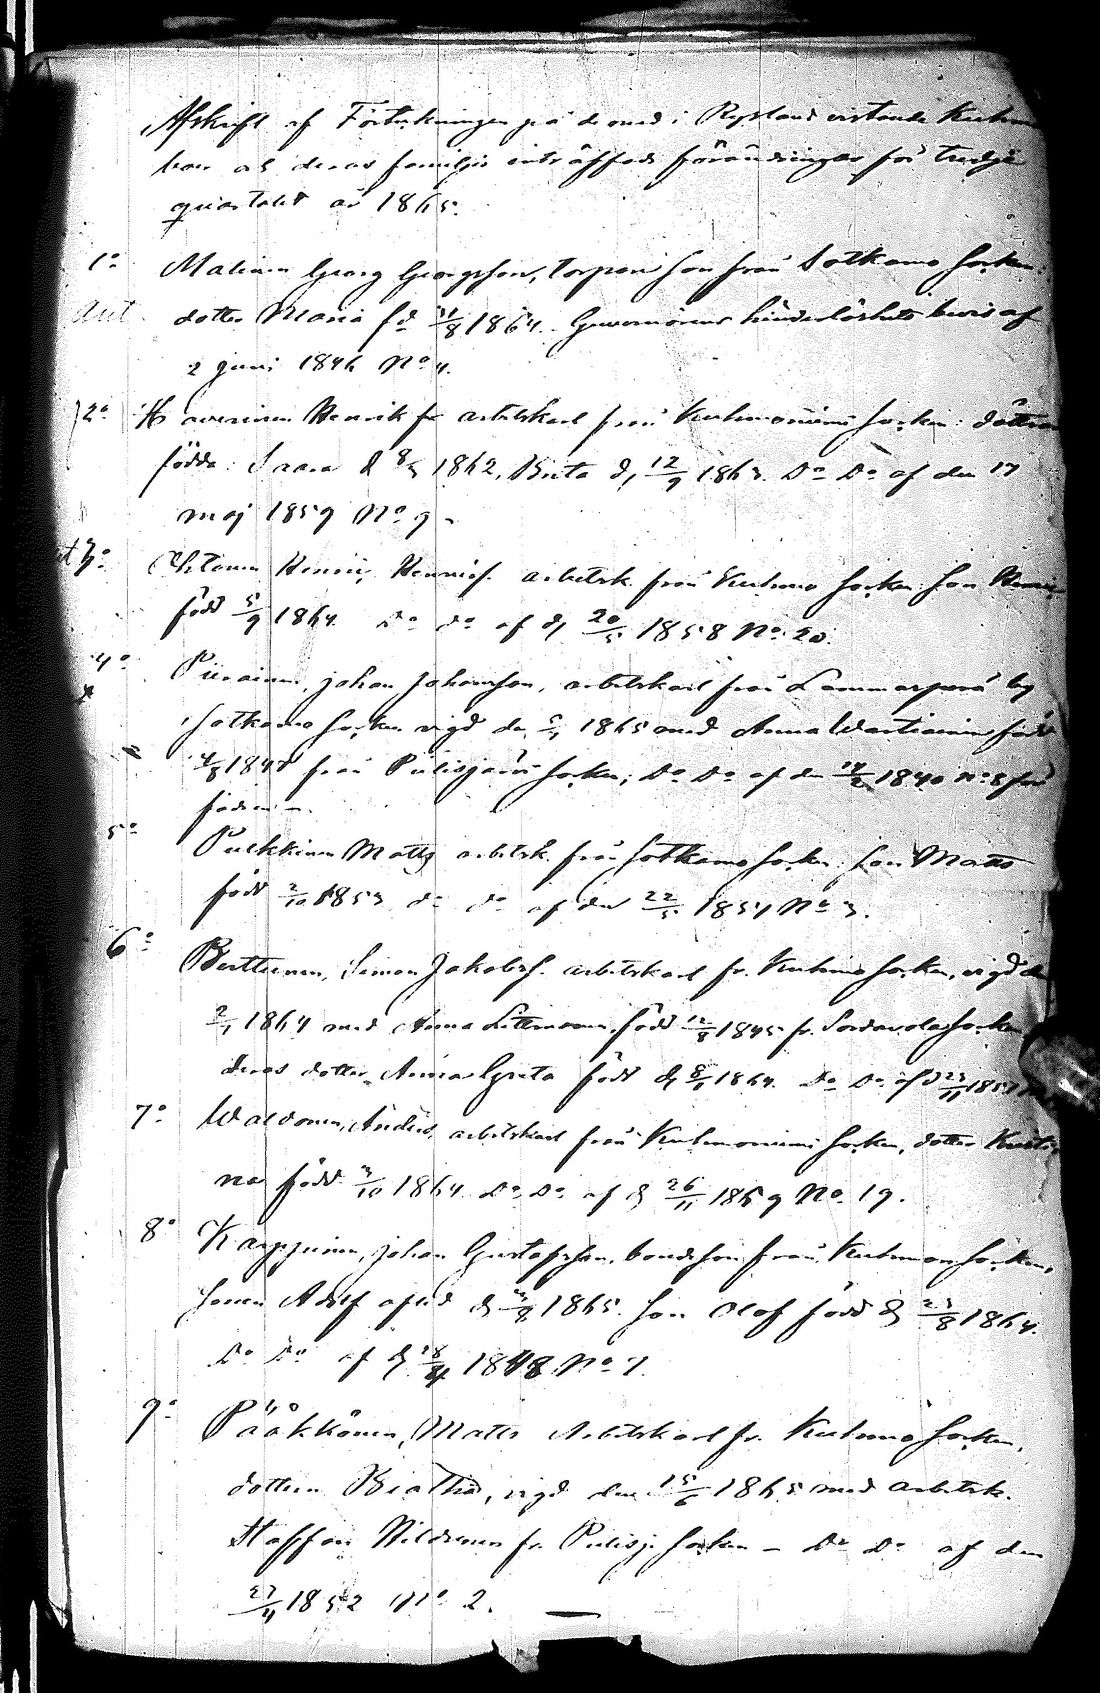 Afskrift af Förteckningen på de med i Ryssland vistande Kuhmo
boer och deras familjer inträffade förändringar för tredje
quartalet år 1865.
1º Malinen Georg Georgsson, torpareson från Sotkamo Socken:
dotter Maria fd 1864. Guvernörens hinderlöshets bevis af
2 juni 1846 Nº 4.
2º Henrik fr arbetskarl från Kuhmoniemi Socken: döttrar
födda: Saara d 8/5 1862, Brita d, 12/9 1863. Dº Dº af den 17
maj 1859 Nº 9.
3º Henric Henrics. arbetsk. från Kuhmo Socken son
född 5/9 1864. Dº Dº af d, 20/5 1858 Nº 20.
4º Piirainen, Johan Johansson, arbetskarl från by
Sotkamo Socken vigd den 1865 med Anna Wartiainen född
från Pielisjärvi Socken; Dº Dº af den 1840 Nº 8 för
fadren –.
5º Pulkkinen Matts arbetsk. från Sotkamo Socken son Matts
född 2/10 1853 dº dº af den 22/5 1851 Nº 3.
6º Simon Jakobss. arbetskarl fr. Kuhmo Socken, vigd den
2/1 1864 med Anna född 12/8 1845 fr. Sordavala Socken
deras dotter Anna Greta född d, 1864. Dº Dº af d 23/11
7º Anders, arbetskarl från Kuhmoniemi Socken, dotter Kristi
na född 3/10 1864 Dº Dº af d 26/11 1859 Nº 19.
8º Karppinen, Johan Gustafsson, bondeson från Kuhmo Socken,
Sonen Adolf afled d 1865. Son Olof född d 23/8 1864.
Dº Dº af d, 1848 Nº 7.
9º Pääkkönen, Matts Arbetskarl fr. Kuhmo Socken,
dottern Beatha, vigd den 15/6 1865 med arbetsk.
Staffan fr. Pielisj. Socken – Dº Dº af den
27/4 1852 Nº 2.